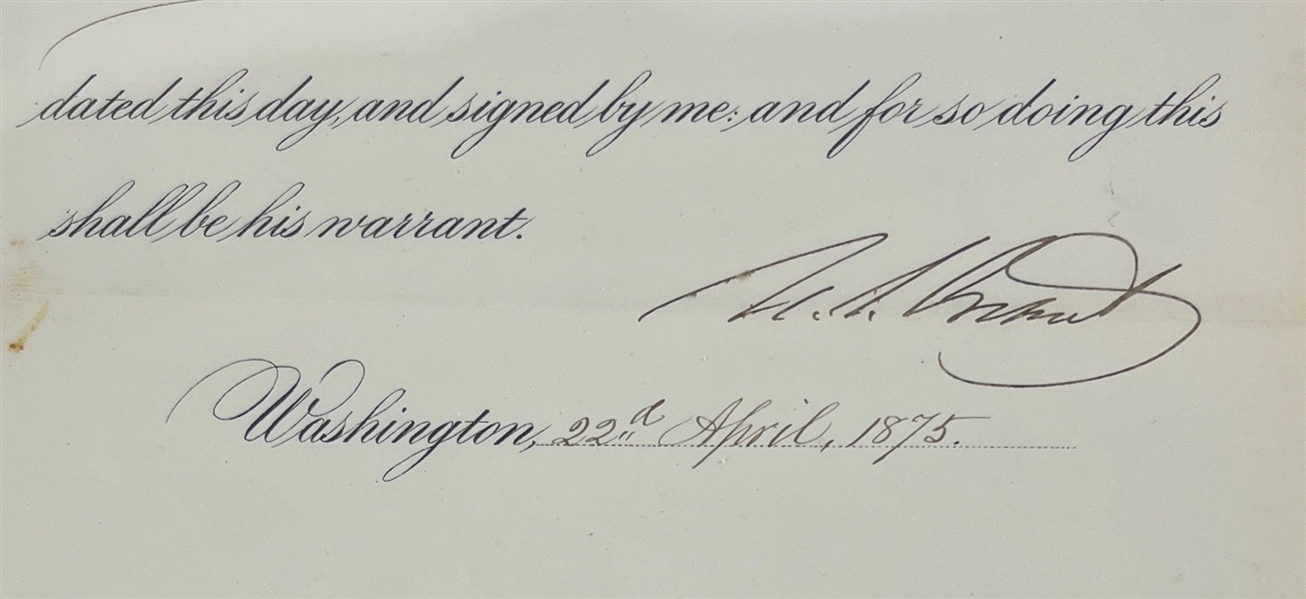 dated this day, and signed by me; and for so doing this
shall be his warrant.
U. S. Grant
Washington, 22d April, 1875.